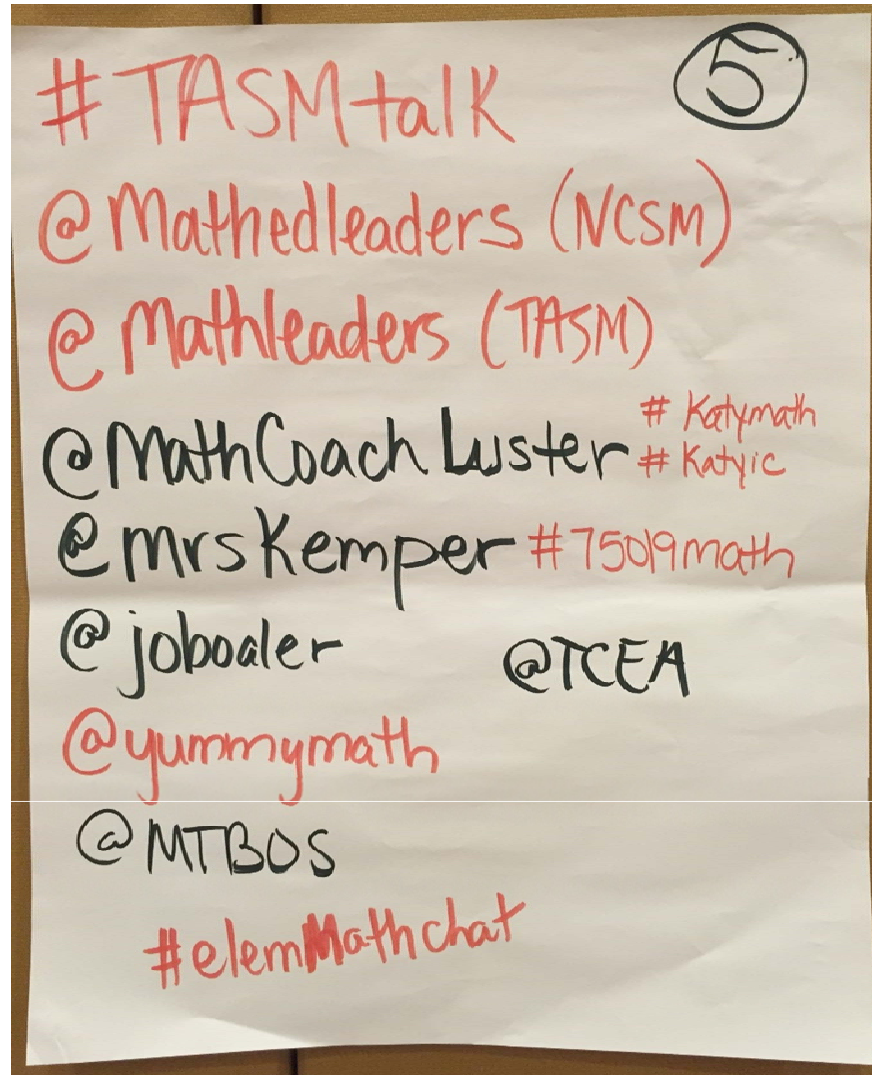 #TASMtalk 5
@Mathedleaders (NCSM)
@Mathleaders (TASM)
@MathCoachLuster #Katymath
#Katyic
@mrsKemper #75019math
@joboaler @TCEA
@yummymath
@MTBOS
#elemMathchat